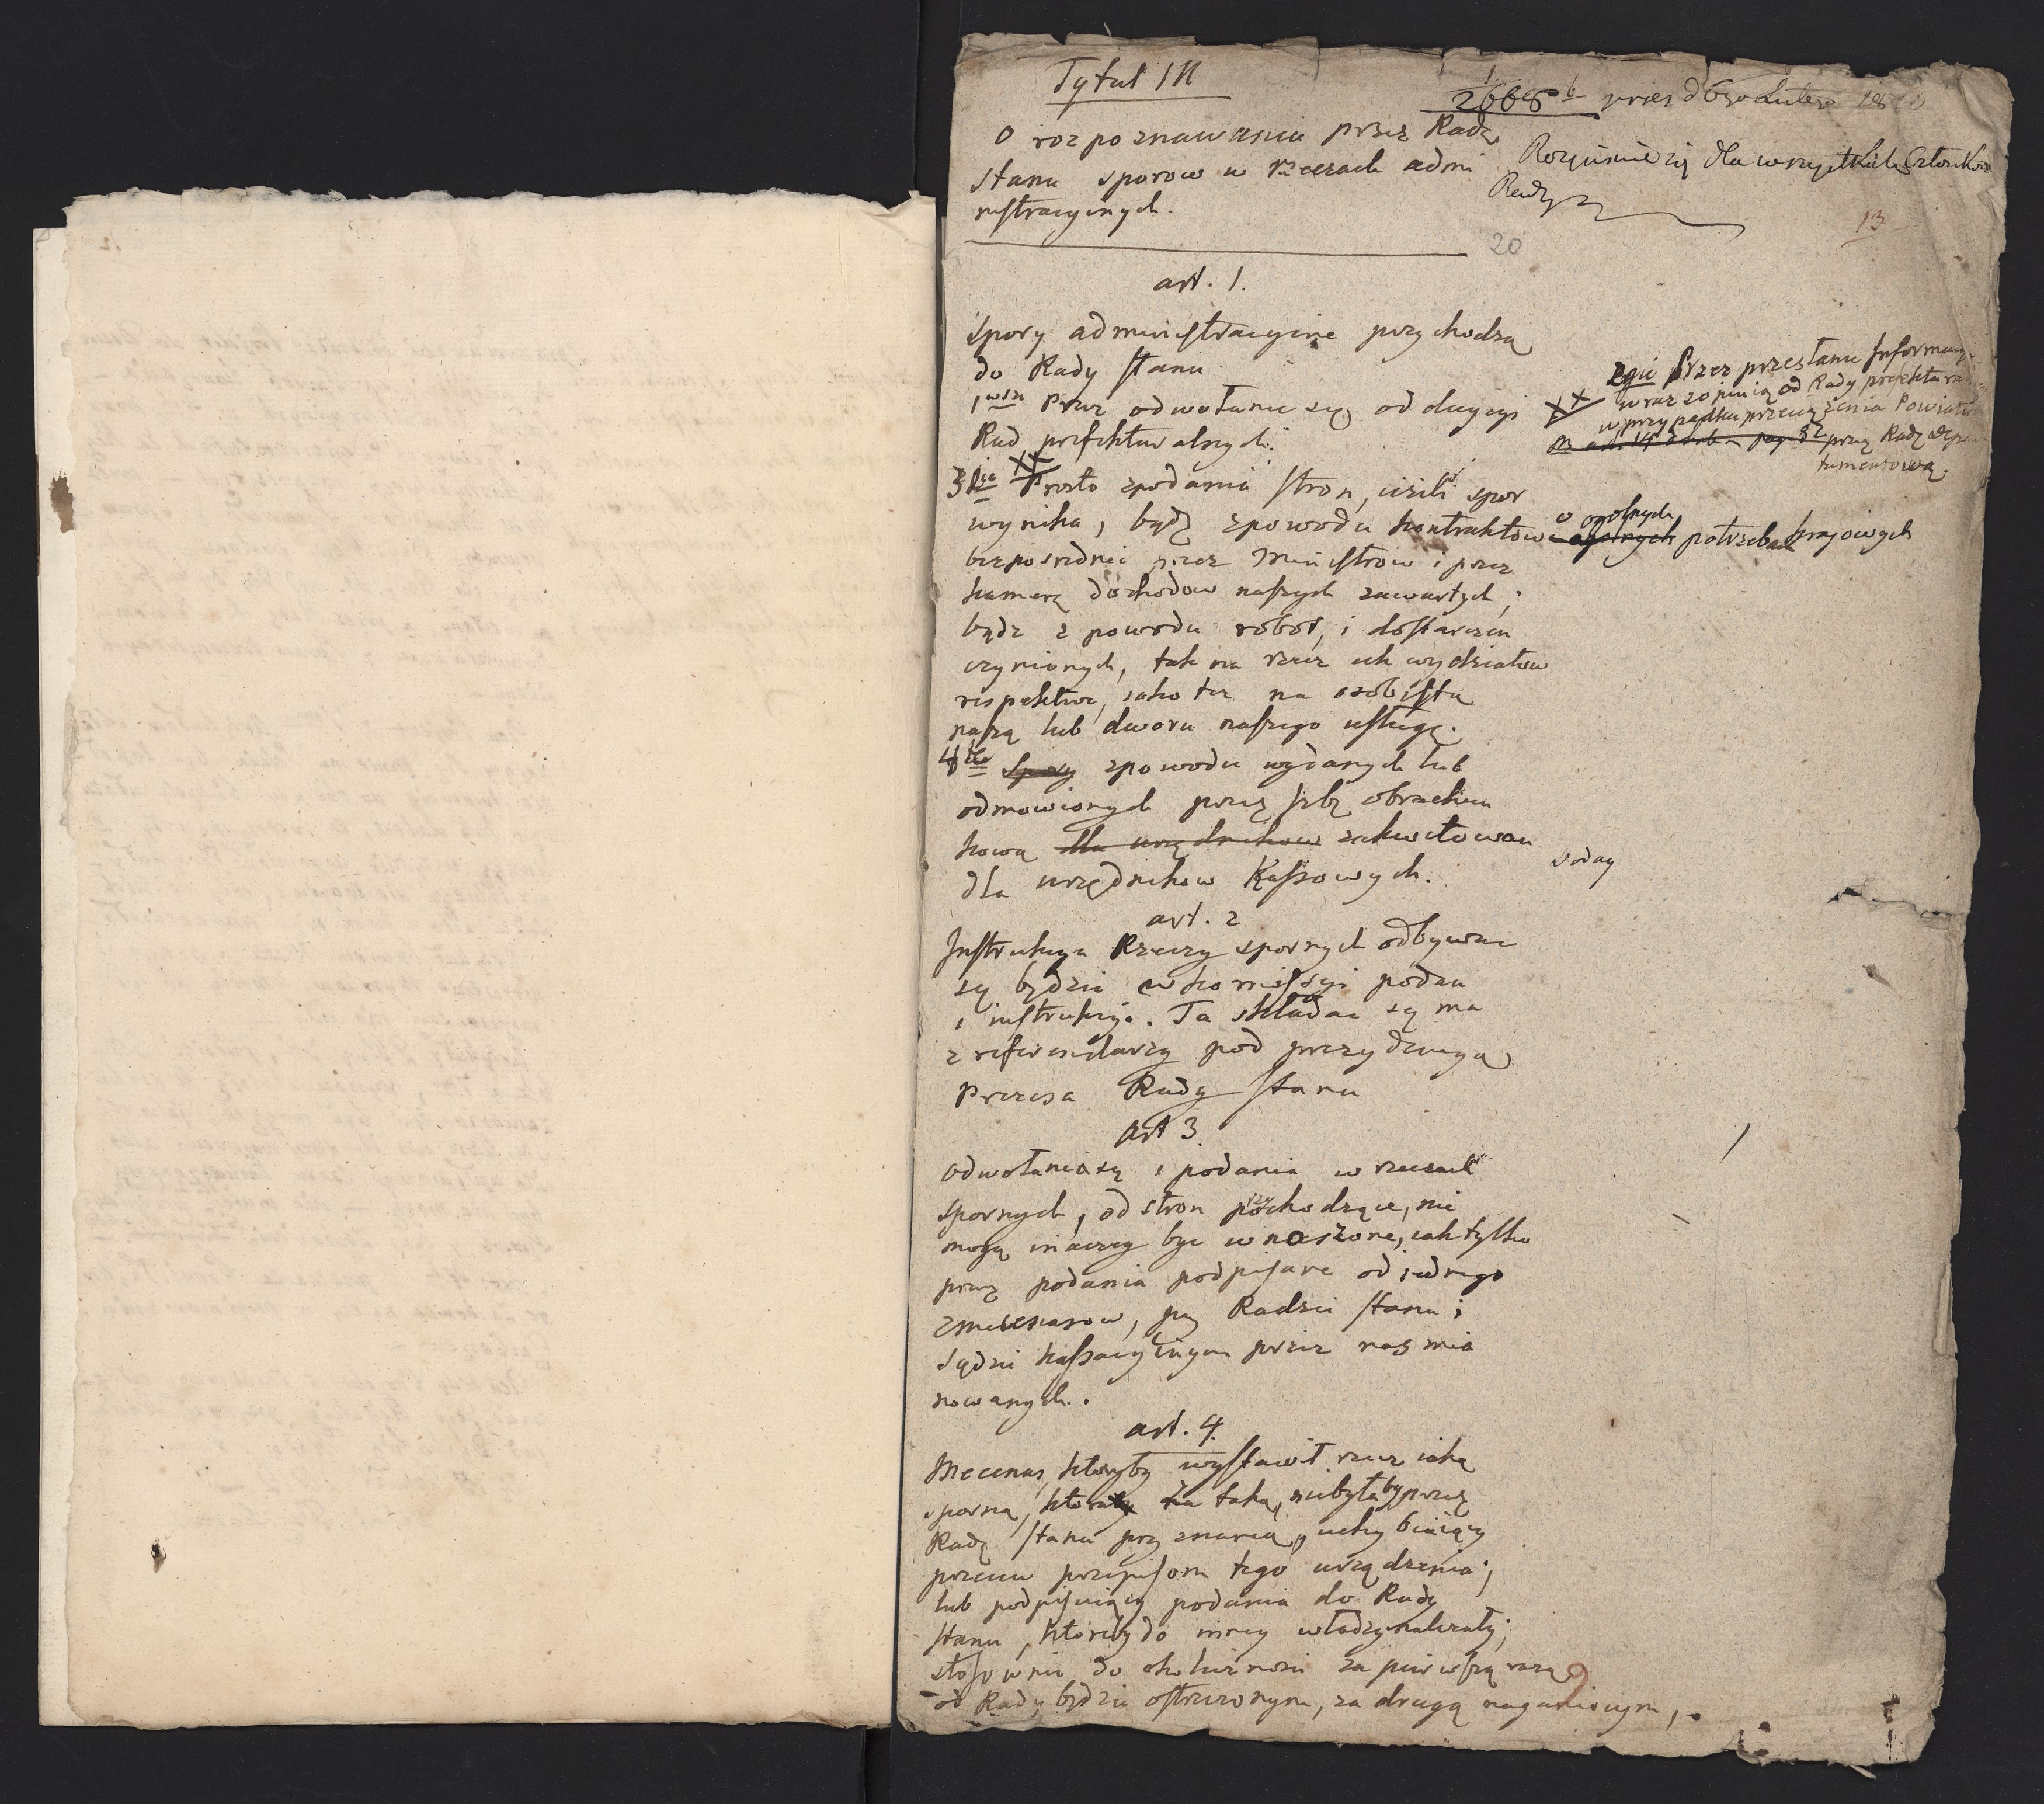 Tytuł III
O rozpoznawaniu przez Radę
Stanu sporow w rzeczach admi
nistracyinych.
2668 pręs d 6go Lutego 18
Rozpisuie się dla wszystkich Członków
Rady
13
20
art. 1.
Spory administracyine przychodzą
do Rady Stanu
1wsze Przez odwołanie się od decyzyi
Rad prefekturalnych.
2gie Przez przesłanie Informacyi
wraz z opinią od Rady prefektural
w przypadku przeciążenia Powiatu
przez Radę depar
tamentową.
3cie Prosto z podania stron, ieżeli spor
wynika, bądź z powodu kontraktow
o ogolnych
ogolnych potrzebach kraiowych
bezposrednie przez Ministrow i przez
kamerę dochodow naszych zawartych;
bądz z powodu robot, i dostarczen
czynionych, tak na rzecz ich wydziałow
respektive, iako też na osobistą
naszą lub dworu naszego usługę.
4te Spory z powodu wydanych lub
odmowionych przez Izbę obrachun
kową dla urzędnikow zakwitowan
dla urzędnikow Kassowych.
art. 2
Instrukcya Rzeczy spornych odbywac
się będzie w kommissyi podan
i instrukcyi. Ta składac się ma
z referendarzy pod prezydencyą
Prezesa Rady Stanu
Art 3.
Odwołania się i podania w rzeczach
spornych, od stron pochodzące, nie
mogą inaczey byc wnoszone, iak tylko
przez podania podpisane od iednego
z mecenasow, przy Radzie Stanu i
Sądzie kassacyinym przez nas mia
nowanych.
art. 4.
Mecenas, ktoryby wystawił rzecz iaką
sporną, ktoraby za taką, niebyłaby przez
Radę Stanu przyznaną, uchybiaiący
przeciw przepisom tego urządzenia;
lub podpisuiący podania do Rady
Stanu, ktoreby do inney władzy należały;
stosownie do okoliczności za pierwszą razą
od Rady będzie ostrzeżonym, za drugą naganionym,